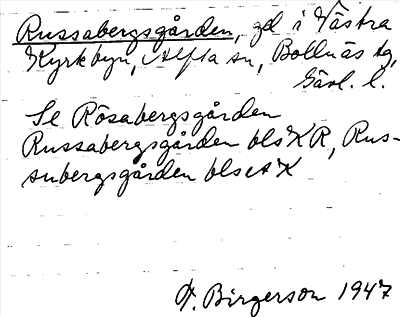 Russabergsgården, gd i Västra
Kyrkbyn, Alfta sn, Bollnäs tg,
Gävl. l.
Se Rösabergsgården
Russabergsgården bls KR, Rus-
subergsgården bls K
F. Birgerson 1947